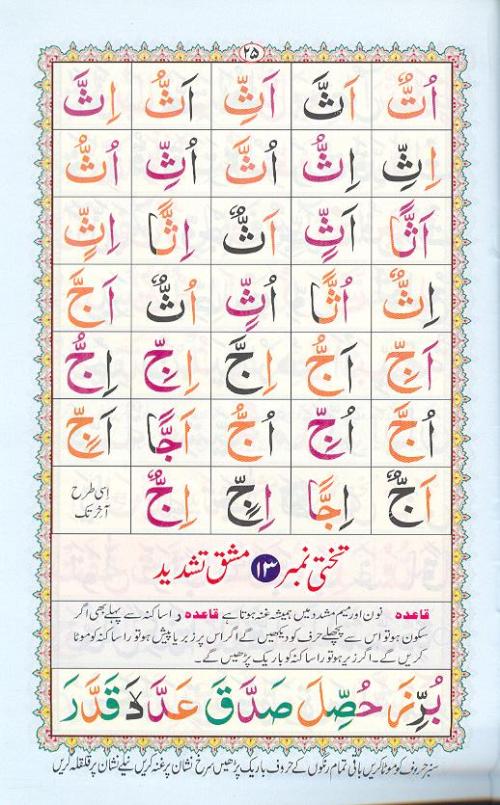 ۲۵
اُتٌّ اَثَّ اَثِّ اَثُّ اِثَّ
اِثِّ اِثُّ اُثَّ اُثِّ اُثُّ
اَثًّا اَثٍّ اَثٌّ اِثًّا اِثٍّ
اِثٌّ اُثًّا اُثٍّ اُثٌّ اَجَّ
اَجِّ اَجُّ اِجَّ اِجِّ اِجُّ
اُجَّ اُجِّ اُجُّ اَجًّا اَجٍّ
اَجٌّ اِجًّا اِجٍّ اِجٌّ اِسی طرح
آخر تک
تختی نمبر ۱۳ مشق تشدید
قاعدہ نون اور میم مشدد میں ہمیشہ غنہ ہوتا ہے قاعدہ را ساکنہ سے پہلے بھی اگر
سکون ہو تو اس سے پچھلے حرف کو دیکھیں گے اگر اس پر زبر یا پیش ہو تو را ساکنہ کو موٹا
کریں گے۔ اگر زیر ہو تو را ساکنہ کو باریک پڑھیں گے۔
بُرِّزَ حُصِّلَ صَدَّقَ قَدَّرَ
سبز حروف کو موٹا کریں باقی تمام رنگوں کے حروف باریک پڑھیں سرخ نشان پر غنہ کریں نیلے نشان پر قلقلہ کریں